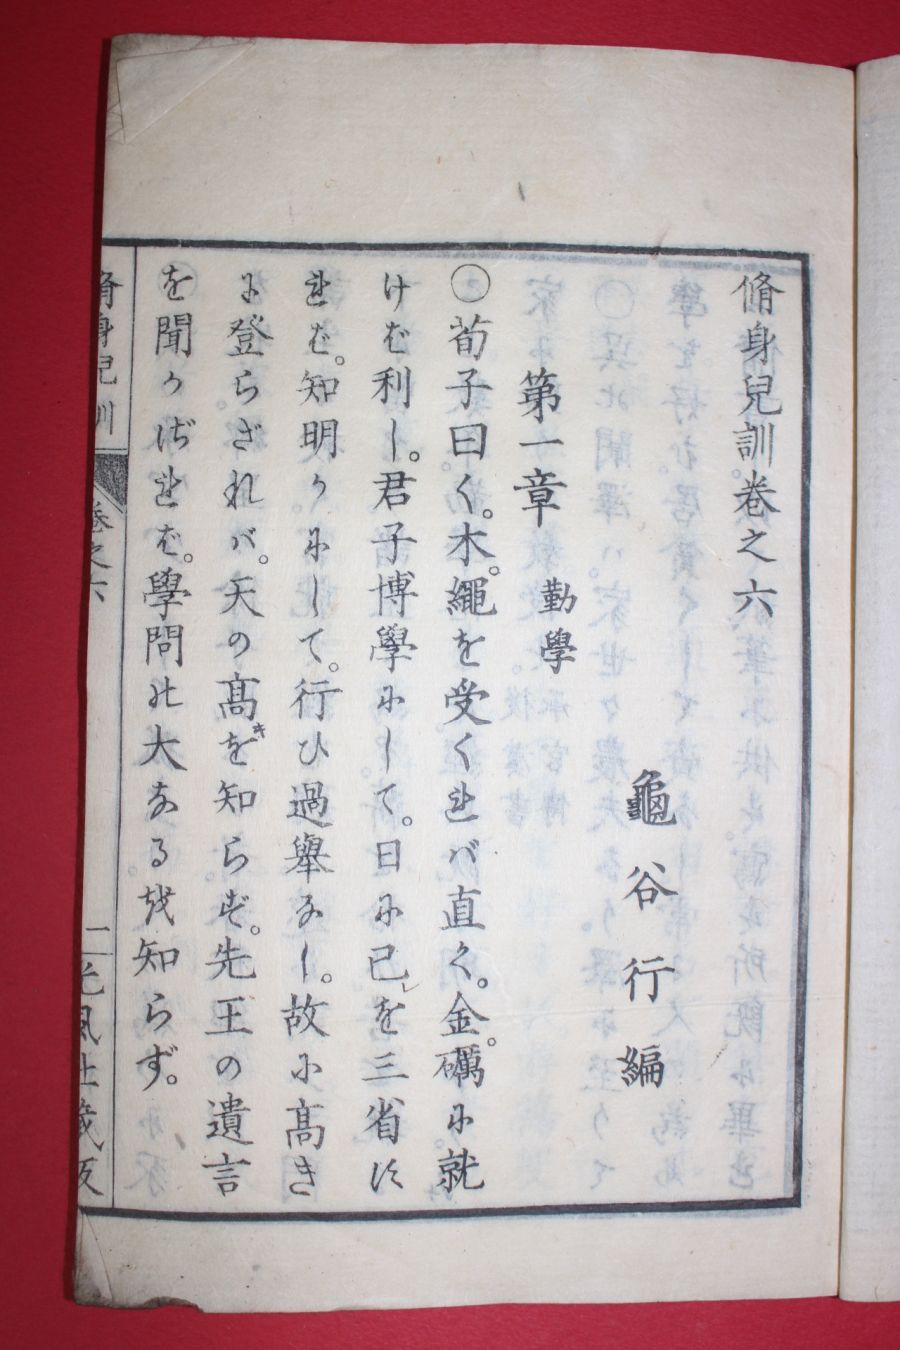 脩身兒訓卷之六
龜谷行編
第一章　勤學
○荀子曰く。木。繩を受くれバ直く。金。礪に就
けば利し。君子博學にして。日に己を三省す
れば。知明かにして。行ひ過擧なし。故に髙き
に登らざれバ。天の髙きを知らず。先王の遺言
を聞かざれば。學問の大なるを知らず。
脩身兒訓　卷之六　一　光風社藏版